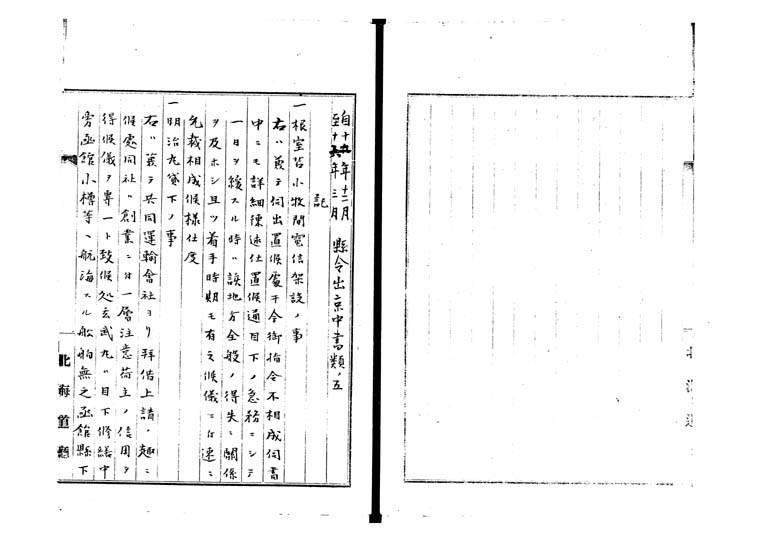 自十五年十二月
至十六年三月
縣令出京中書類ノ五
記
一根室苫小牧間電信架設ノ事
右ハ兼テ伺出置候處于今御指令不相成伺書
中ニモ詳細陳述仕置候通目下ノ急務ニシテ
一日ヲ緩スル時ハ該地方全般ノ得失ニ關係
ヲ及ホシ且ツ着手時期モ有之候儀ニ付速ニ
允裁相成候様仕度
一明治丸貸下ノ事
右ハ兼テ共同運輸會社ヨリ拜借上請ノ趣ニ
候處同社ハ創業ニ付一層注意荷主ノ信用ヲ
得候儀ヲ専一ト致候処玄武丸ハ目下修繕中
旁函館小樽等ヘ航海スル船舶無之函館縣下
北海道廳
北海道